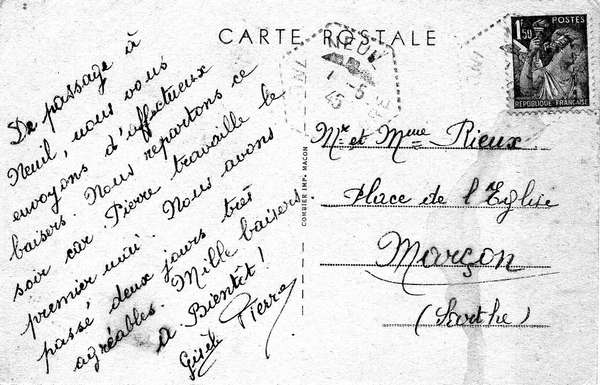 CARTE POSTALE
De passage à
Neuil, nous vous
envoyons d'affectueux
baisers. Nous repartons ce
soir car Pierre travaille le
premier mai. Nous avons
passé deux jours très
agréables. Mille baisers
a Bientôt!
Gisèle Pierre
COMBIER IMP. MACON
NEUIL
1-5
45
POSTES
1F50
REPUBLIQUE FRANÇAISE
Mr et Mme Rieux
Place de l'Eglise
Marçon
(Sarthe)